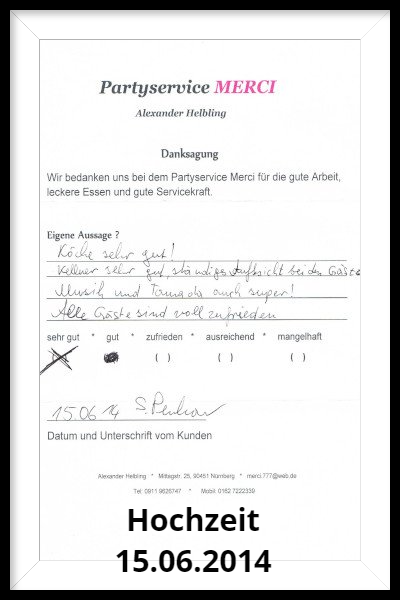 Partyservice MERCI
Alexander Helbling
Danksagung
Wir bedanken uns bei dem Partyservice Merci für die gute Arbeit,
leckere Essen und gute Servicekraft.
Eigene Aussage ?
Köche sehr gut!
Kellner sehr gut, ständiges Aufsicht bei den Gäste
Musik und Tamada auch super!
Alle Gäste sind voll zufrieden
sehr gut * gut * zufrieden * ausreichend * mangelhaft
( ) ( ) ( )
15.06.14 S.
Datum und Unterschrift vom Kunden
Alexander Helbling * Mittagstr, 25, 90451 Nürnberg * merci.777@web.de
Tel: 0911 9626747 * Mobil: 0162 7222339
Hochzeit
15.06.2014